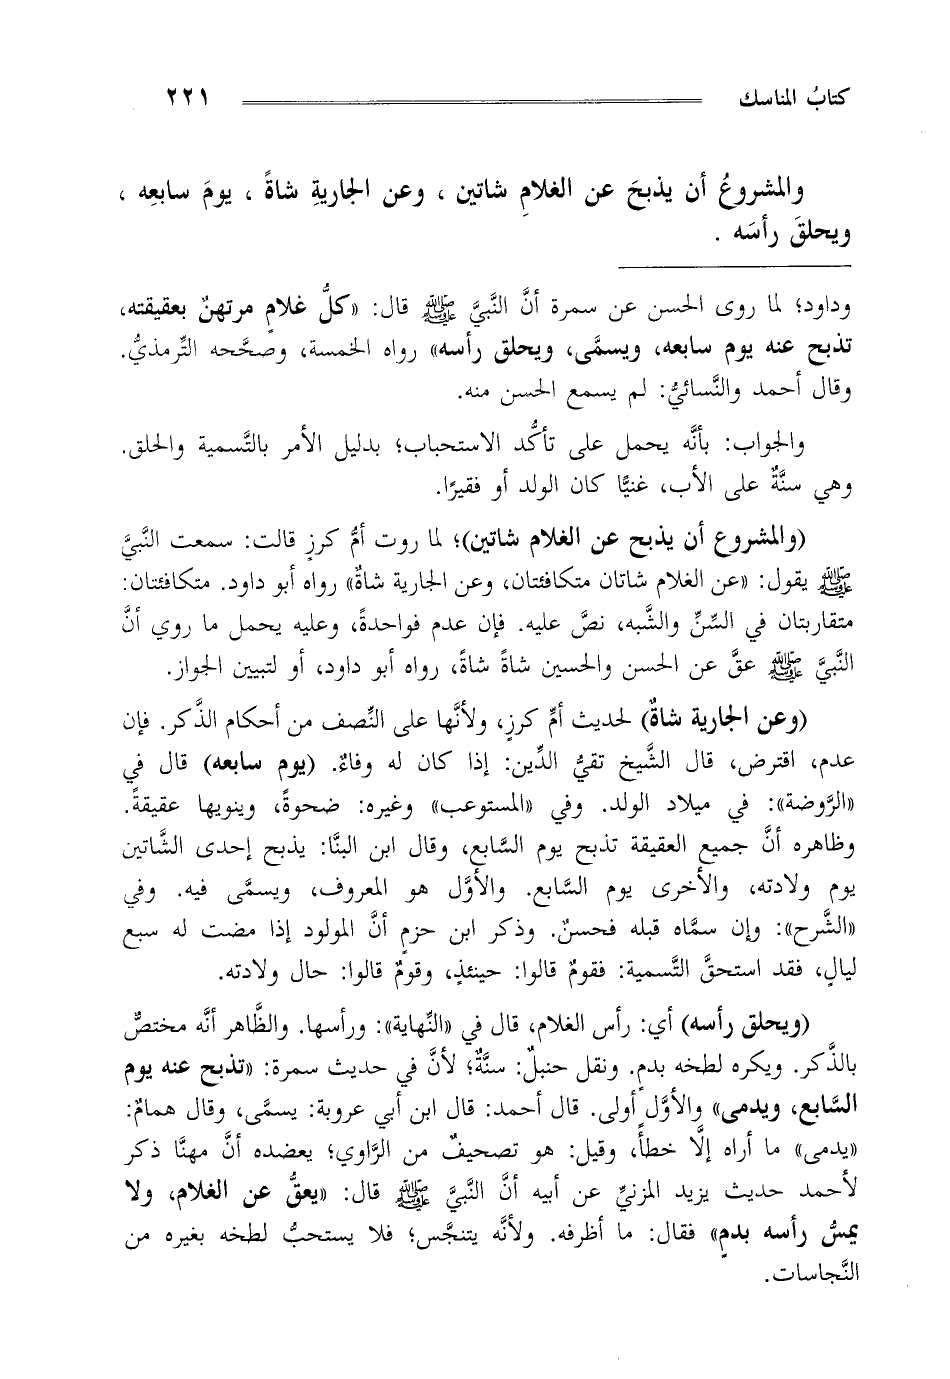 كتابُ المناسك ٢٢١
والمشروعُ أن يذبحَ عن الغلامِ شاتين ، وعن الجاريةِ شاةً ، يومَ سابعِه ،
ويحلقَ رأسَه .
وداود؛ لما روى الحسن عن سمرة أنَّ النَّبيَّ ﷺ قال: «كلُّ غلامٍ مرتهنٌ بعقيقته،
تذبح عنه يوم سابعه، ويسمَّى، ويحلق رأسه» رواه الخمسة، وصحَّحه التِّرمذيُّ.
وقال أحمد والنَّسائيُّ: لم يسمع الحسن منه.
والجواب: بأنَّه يحمل على تأكُّد الاستحباب؛ بدليل الأمر بالتَّسمية والحلق.
وهي سنَّةٌ على الأب، غنيًّا كان الولد أو فقيرًا.
(والمشروع أن يذبح عن الغلام شاتين)؛ لما روت أمُّ كرزٍ قالت: سمعت النَّبيَّ
ﷺ يقول: «عن الغلام شاتان متكافئتان، وعن الجارية شاةٌ» رواه أبو داود. متكافئتان:
متقاربتان في السِّنِّ والشَّبه، نصَّ عليه. فإن عدم فواحدةً، وعليه يحمل ما روي أنَّ
النَّبيَّ ﷺ عقَّ عن الحسن والحسين شاةً شاةً، رواه أبو داود، أو لتبيين الجواز.
(وعن الجارية شاةٌ) لحديث أمِّ كرزٍ، ولأنَّها على النِّصف من أحكام الذَّكر. فإن
عدم، اقترض، قال الشَّيخ تقيُّ الدِّين: إذا كان له وفاءٌ. (يوم سابعه) قال في
«الرَّوضة»: في ميلاد الولد. وفي «المستوعب» وغيره: ضحوةً، وينويها عقيقةً.
وظاهره أنَّ جميع العقيقة تذبح يوم السَّابع، وقال ابن البنَّا: يذبح إحدى الشَّاتين
يوم ولادته، والأخرى يوم السَّابع. والأوَّل هو المعروف، ويسمَّى فيه. وفي
«الشَّرح»: وإن سمَّاه قبله فحسنٌ. وذكر ابن حزمٍ أنَّ المولود إذا مضت له سبع
ليالٍ، فقد استحقَّ التَّسمية: فقومٌ قالوا: حينئذٍ، وقومٌ قالوا: حال ولادته.
(ويحلق رأسه) أي: رأس الغلام، قال في «النِّهاية»: ورأسها. والظَّاهر أنَّه مختصٌّ
بالذَّكر. ويكره لطخه بدمٍ. ونقل حنبلٌ: سنَّةٌ؛ لأنَّ في حديث سمرة: «تذبح عنه يوم
السَّابع، ويدمى» والأوَّل أولى. قال أحمد: قال ابن أبي عروبة: يسمَّى، وقال همامٌ:
«يدمى» ما أراه إلَّا خطأً، وقيل: هو تصحيفٌ من الرَّاوي؛ يعضده أنَّ مهنَّا ذكر
لأحمد حديث يزيد المزنيِّ عن أبيه أنَّ النَّبيَّ ﷺ قال: «يعقُّ عن الغلام، ولا
يمسُّ رأسه بدمٍ» فقال: ما أظرفه. ولأنَّه يتنجَّس؛ فلا يستحبُّ لطخه بغيره من
النَّجاسات.